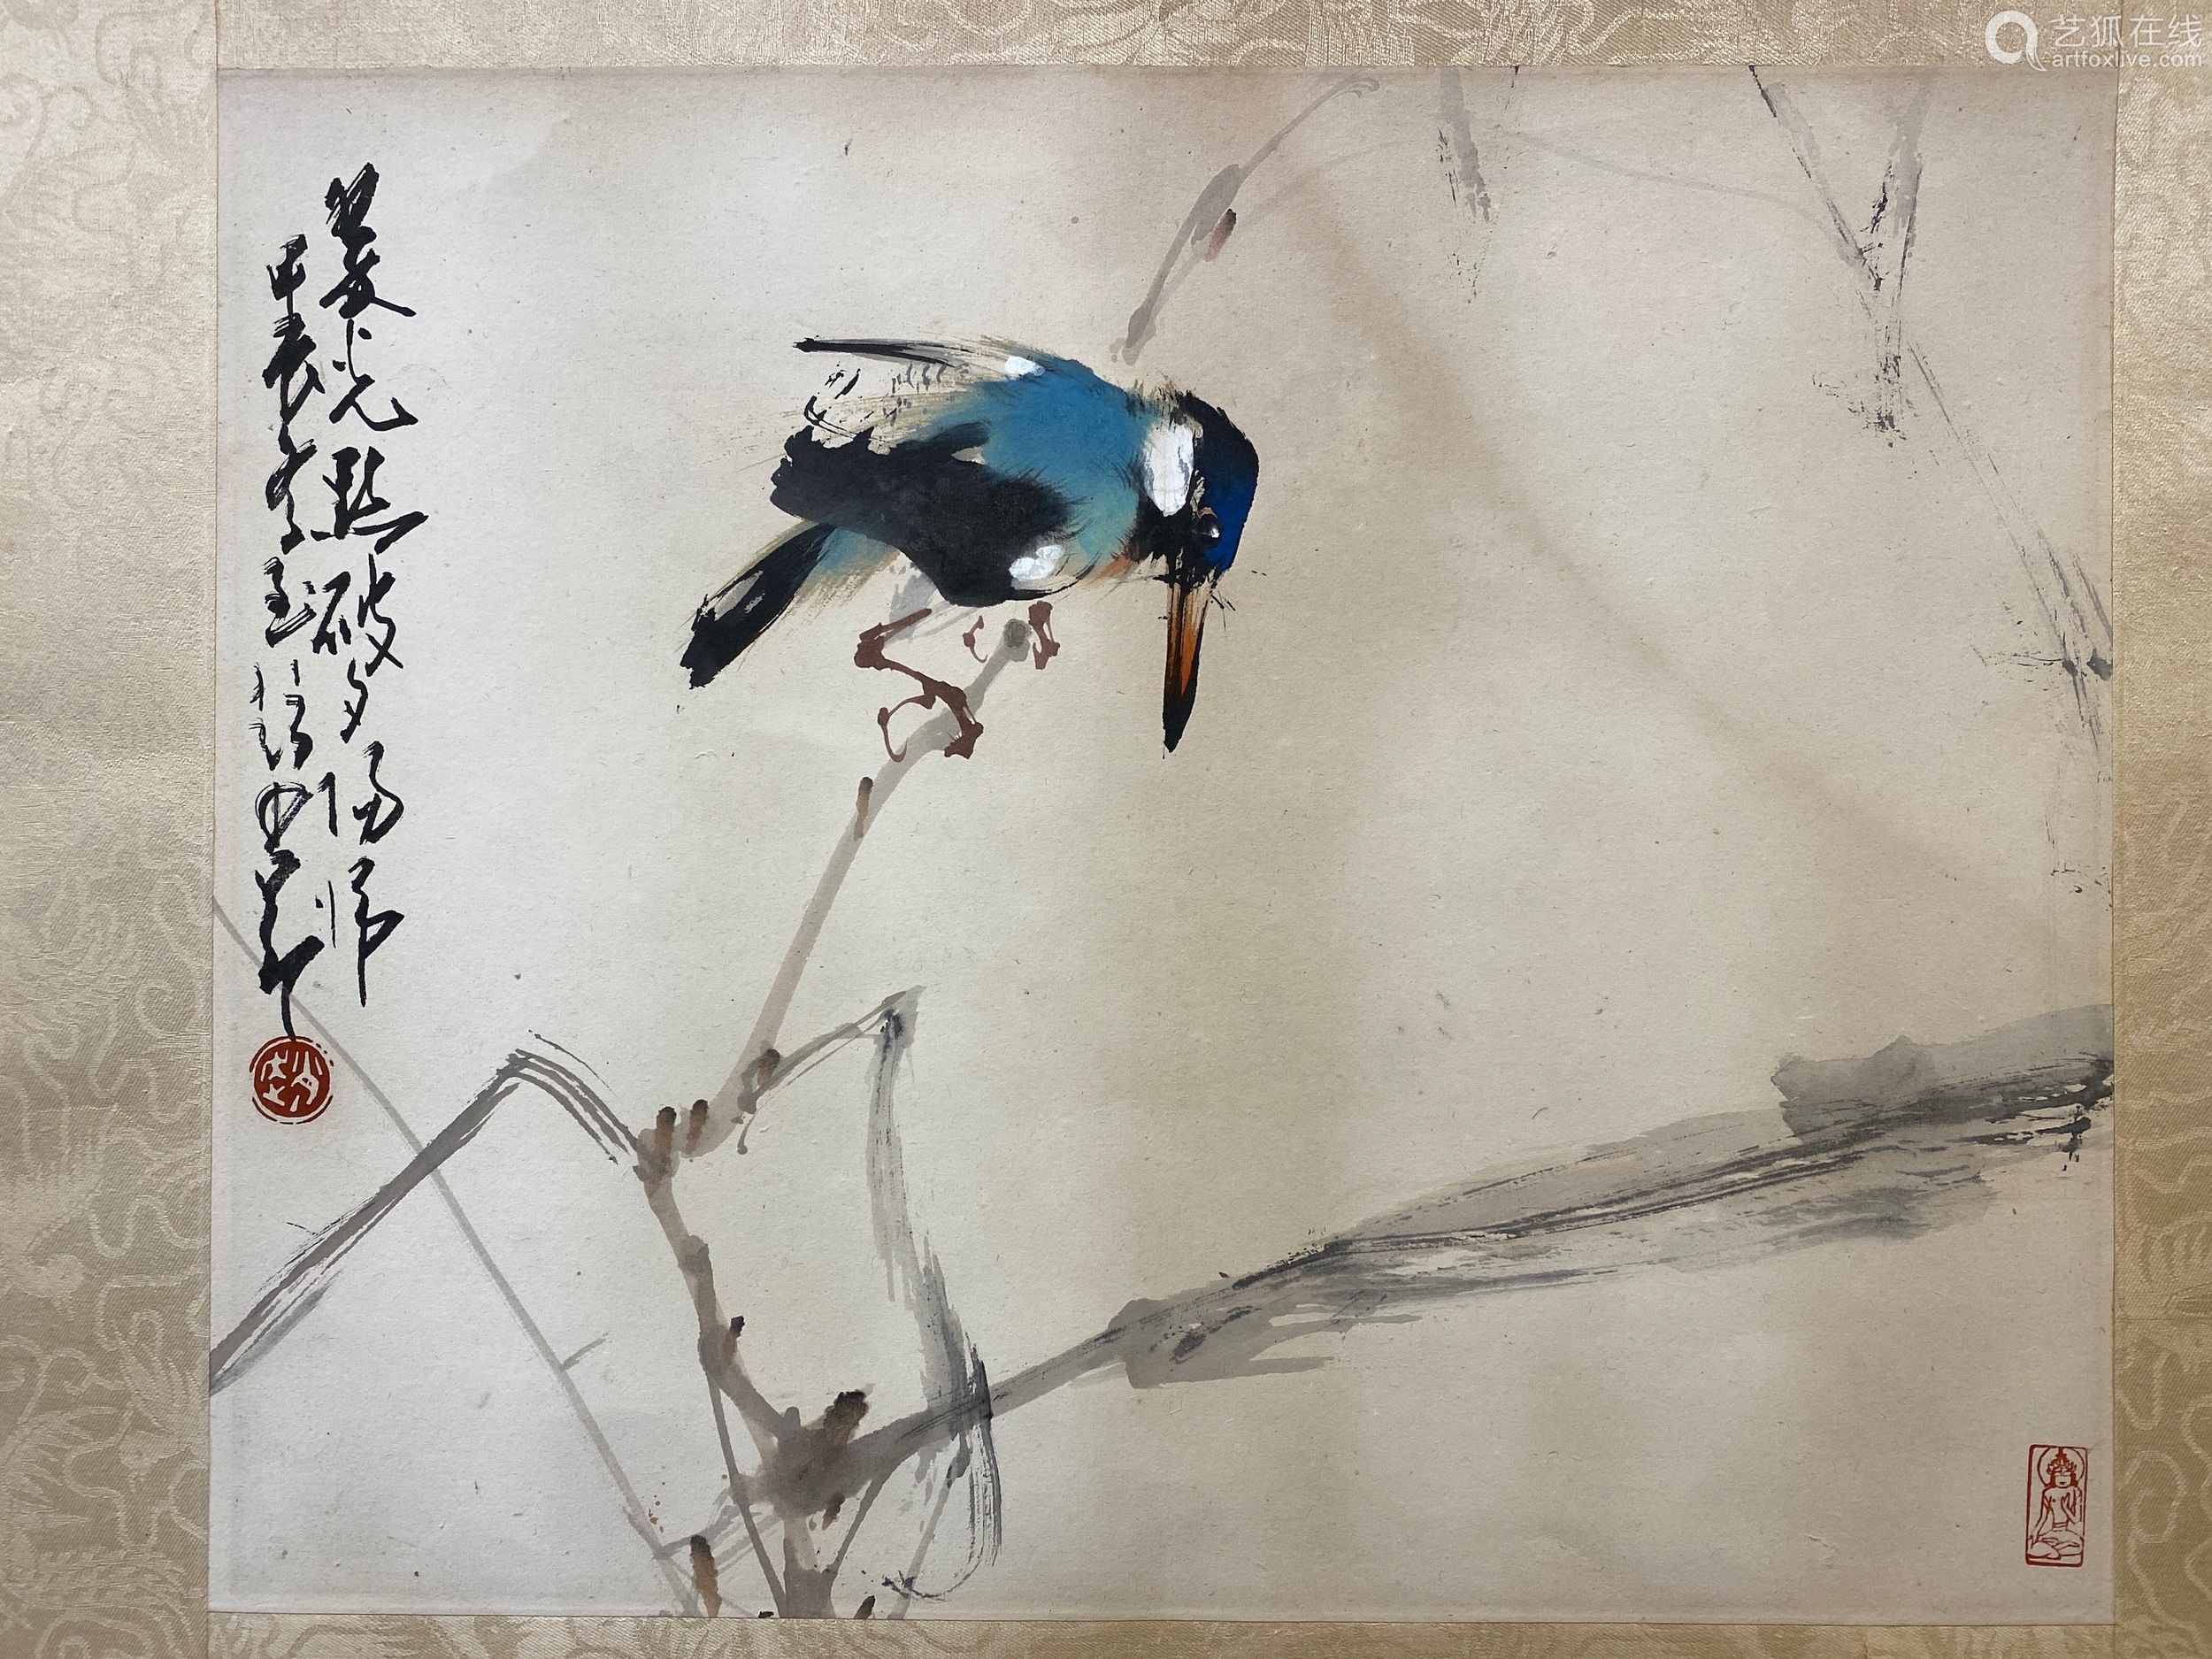 艺狐在线
artfoxlive.com
翠光點破夕陽歸
甲辰冬至後少昂